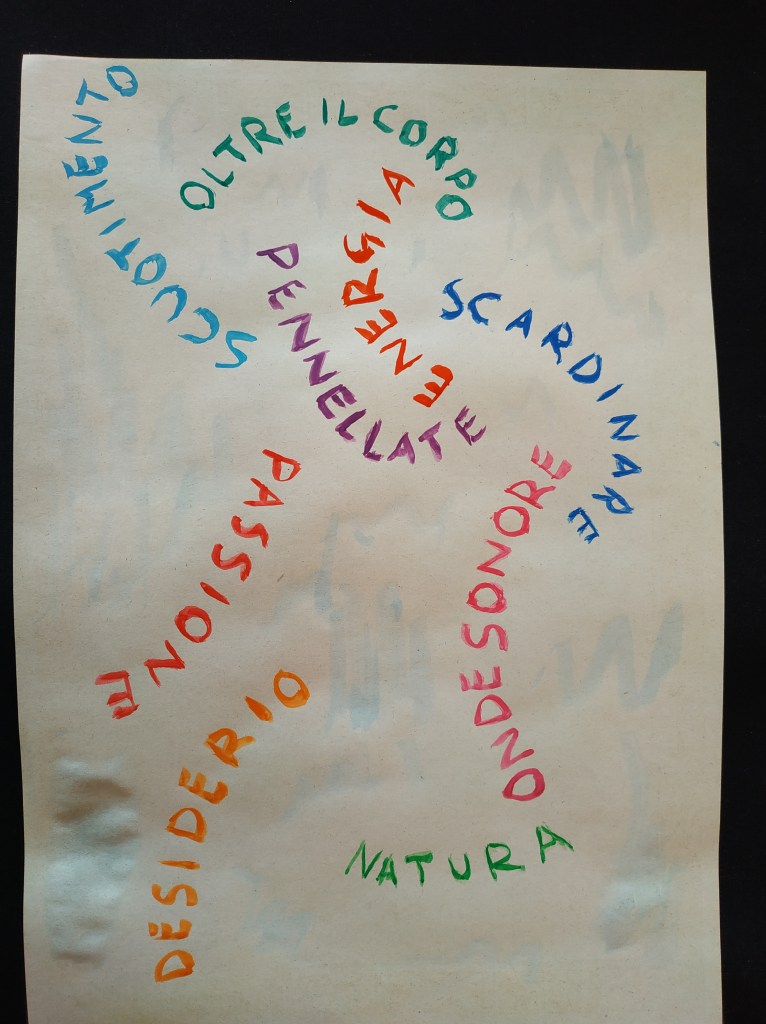 SCUOTIMENTO
OLTRE IL CORPO
ENERGIA
PENNELLATE
SCARDINARE
PASSIONE
ONDE SONORE
DESIDERIO
NATURA